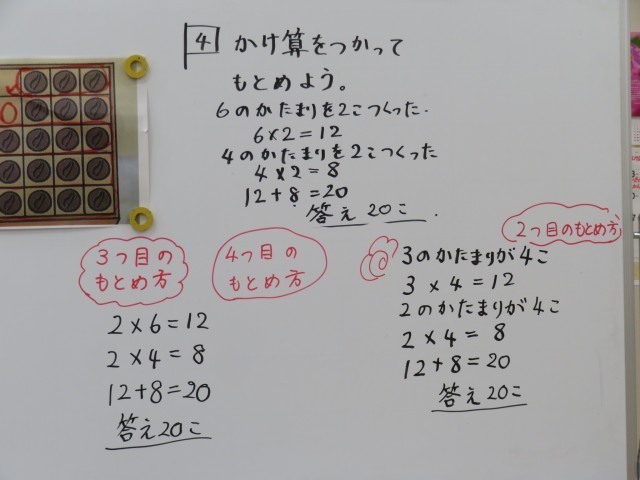 4 かけ算をつかって
もとめよう。
6のかたまりを2こつくった.
6×2=12
4のかたまりを2こつくった
4×2=8
12+8=20
答え 20こ.
2つ目のもとめ方
3のかたまりが4こ
3×4=12
2のかたまりが4こ
2×4=8
12+8=20
答え20こ
3つ目の
もとめ方
2×6=12
2×4=8
12+8=20
答え20こ
4つ目の
もとめ方